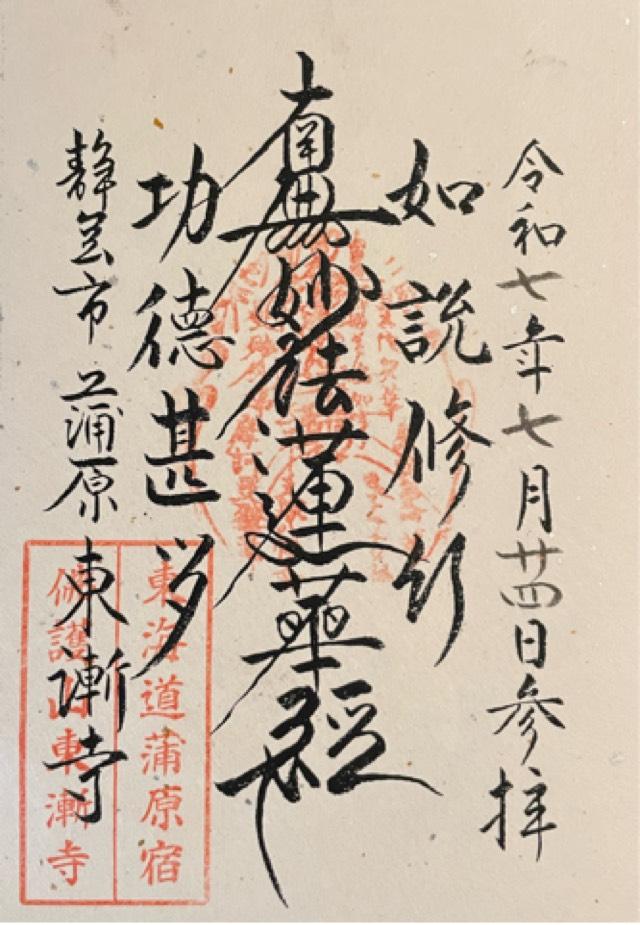 令和七年七月廿四日参拝
如説修行
南無妙法蓮華経
功徳甚多
静岡市蒲原東漸寺
東海道蒲原宿
修護山東漸寺